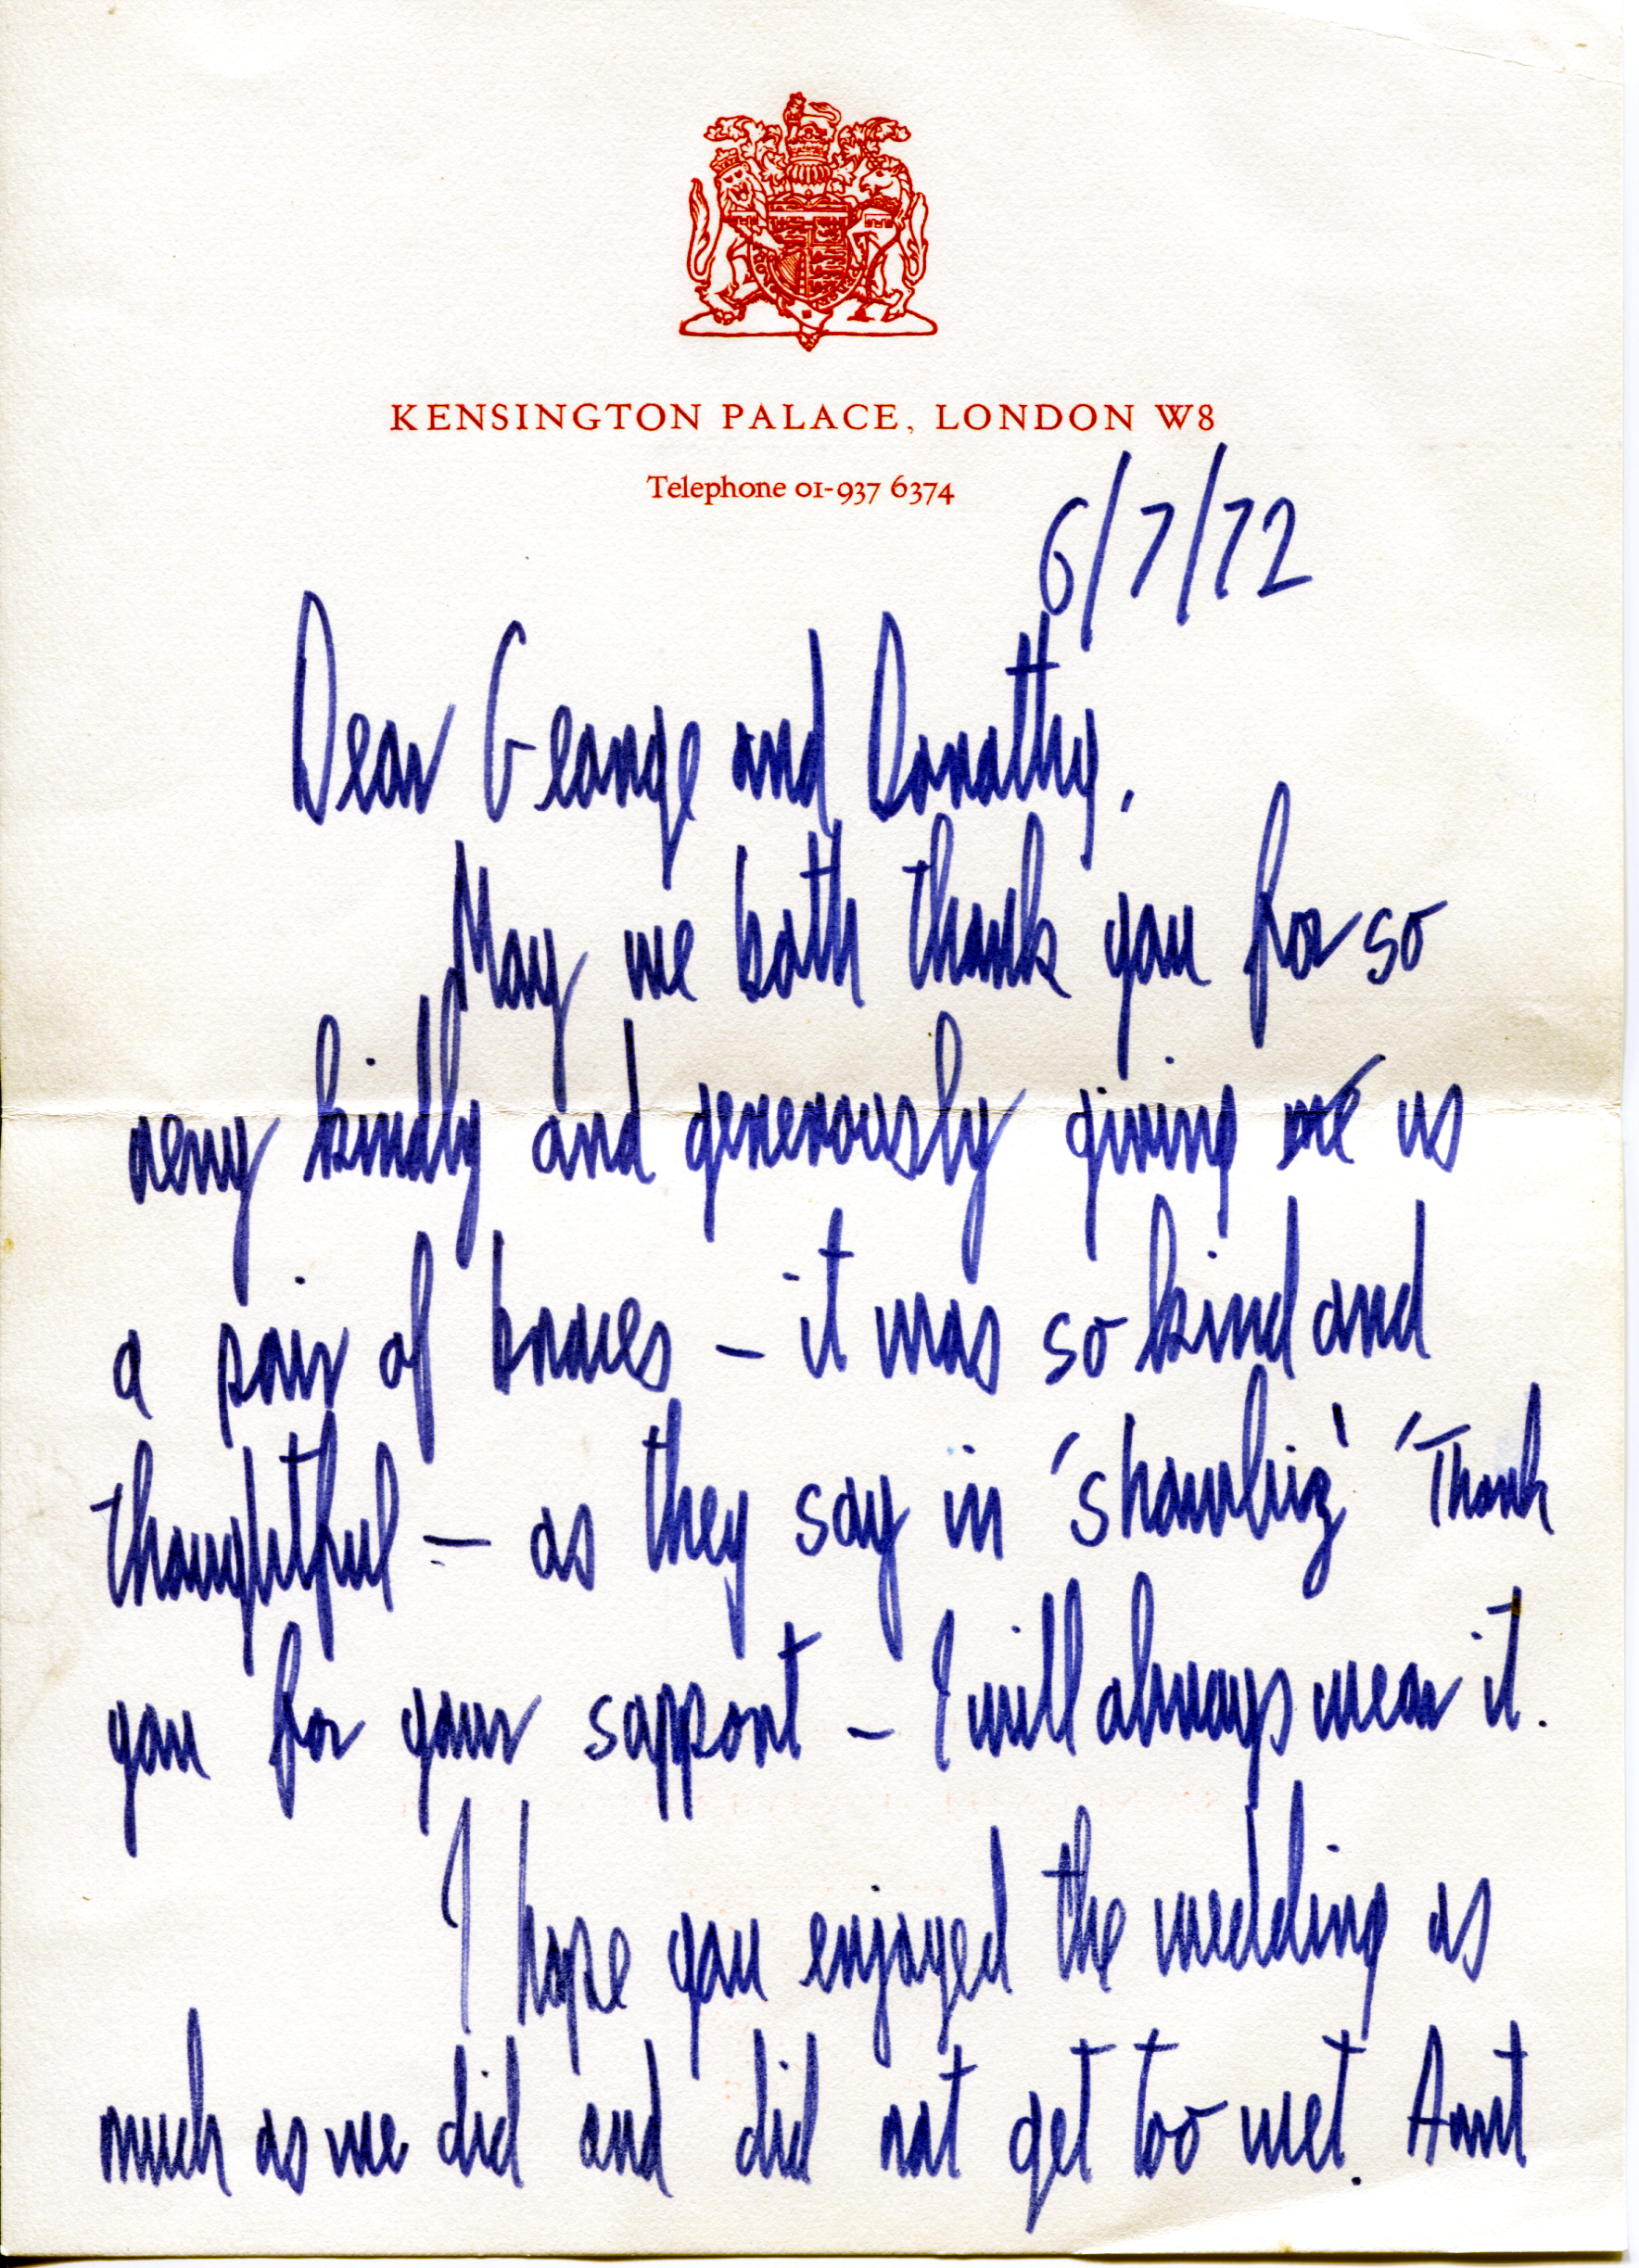 KENSINGTON PALACE, LONDON W8
Telephone 01-937 6374
6/7/72
Dear George and Dorothy,
May we both thank you for so
very kindly and generously giving me us
a pair of braces – it was so kind and
thoughtful – as they say in 'showbiz' 'Thank
you for your support – I will always wear it.
I hope you enjoyed the wedding as
much as we did and did not get too wet. Aunt